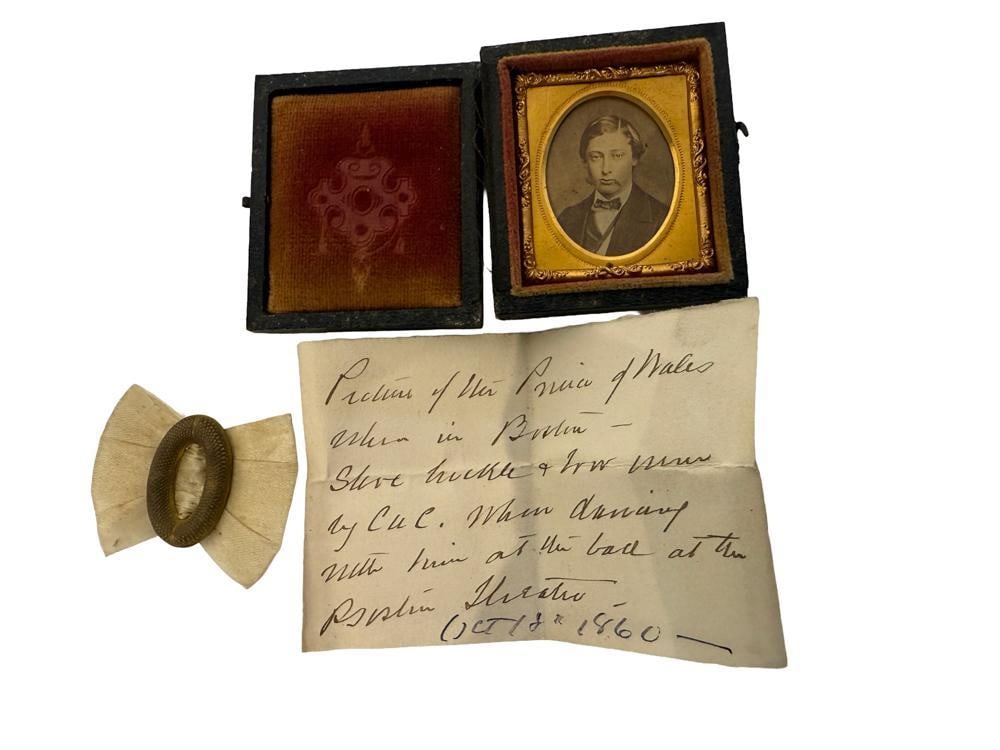 Picture of the Prince of Wales
When in Boston –
Shoe buckle & bow worn
by C A C. When dancing
with him at the ball at the
Boston Theatre
Oct 18th 1860 —